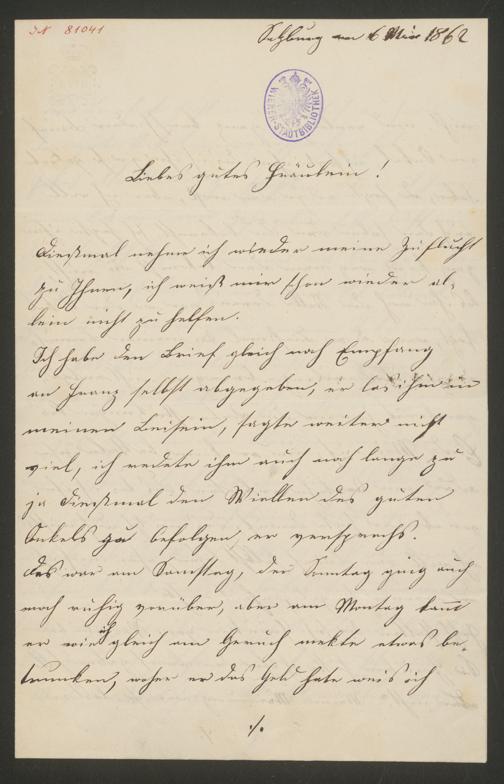 JN 81041
Salzburg am 6 März 1862
WIENER-STADTBIBLIOTHEK
Liebes gutes Fräulein!
Dießmal nehme ich wieder meine Zuflucht
zu Ihnen, ich weiß mir schon wieder al-
lein nicht zu helfen.
Ich habe den Brief gleich nach Empfang
an Franz selbst abgegeben, er las ihn in
meinen Beisein, sagte weiter nicht
viel, ich redete ihm auch noch lange zu
ja dießmal den Willen des guten
Onkels zu befolgen, er versprachs.
Das war am Samstag, der Sonntag ging auch
noch ruhig vorüber, aber am Montag kam
er wie ich gleich am Geruch merkte etwas be-
trunken, woher er das Geld hate weis ich
./.